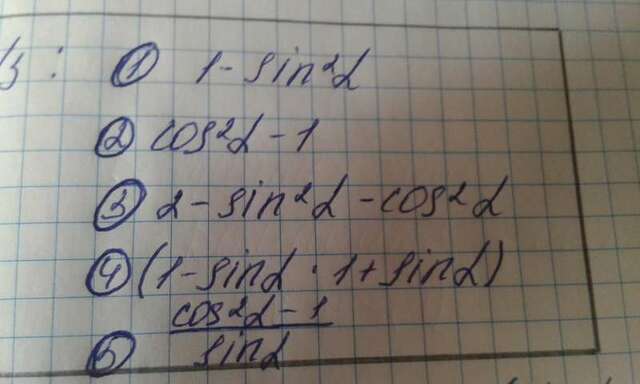 з: ① 1 - sin²α
② cos²α - 1
③ 2 - sin²α - cos²α
④ (1 - sinα · 1 + sinα)
⑤ cos²α - 1
sinα